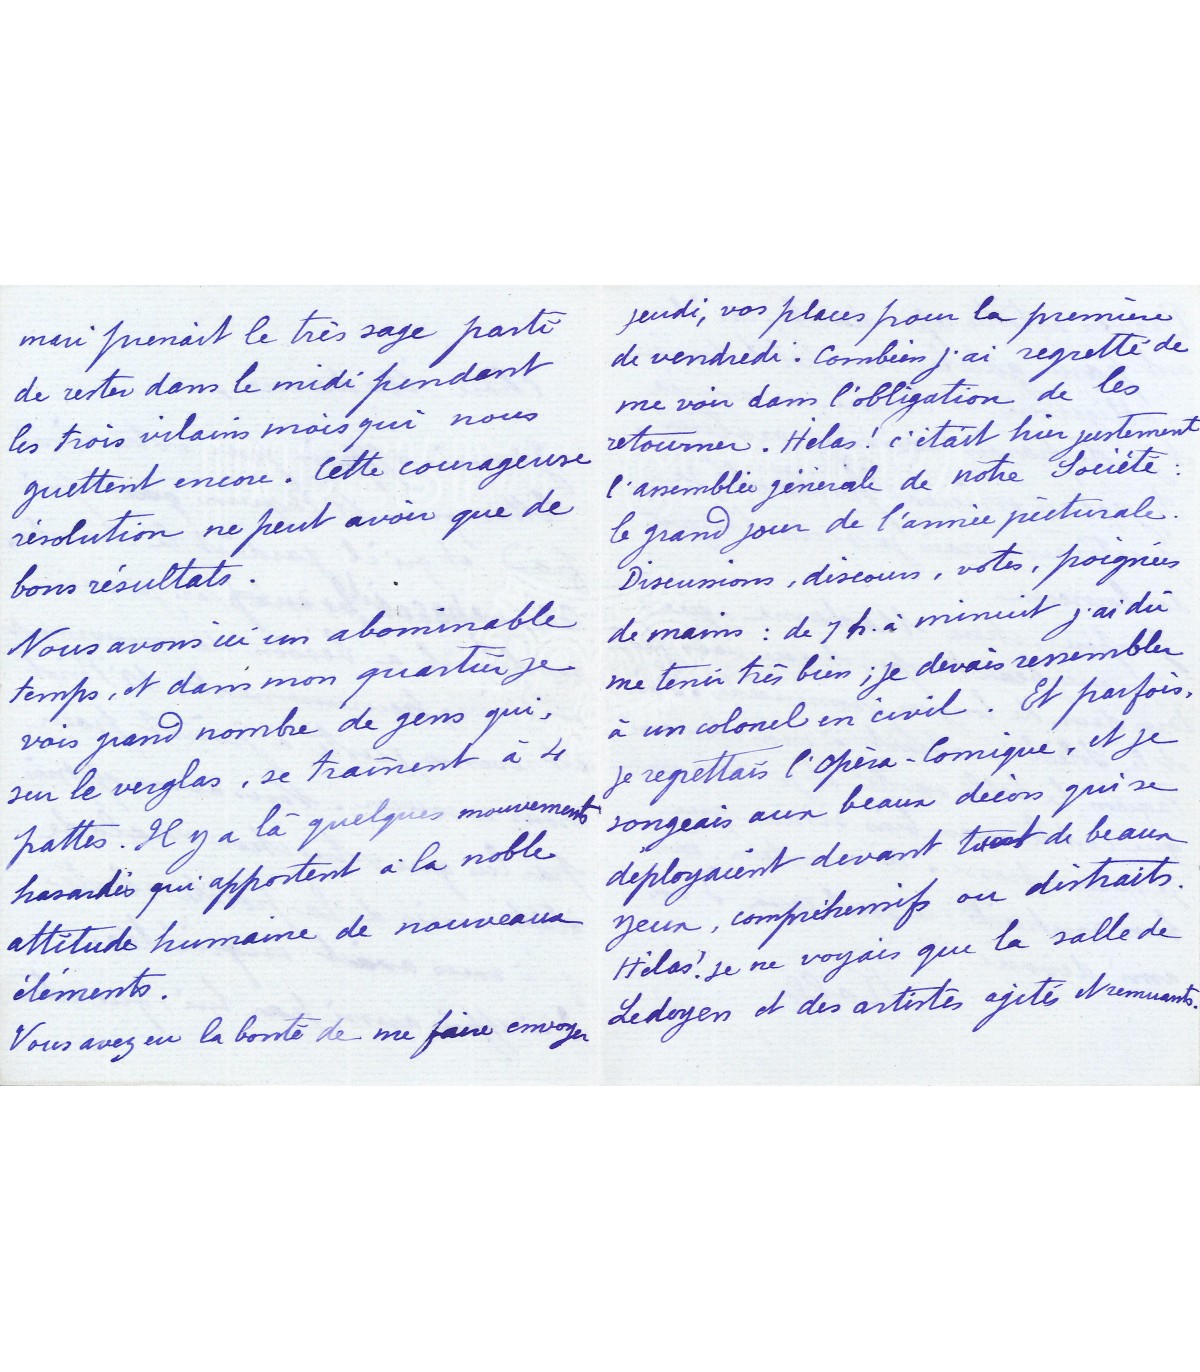 mari prenait le très sage parti
de rester dans le midi pendant
les trois vilains mois qui nous
guettent encore. Cette courageuse
résolution ne peut avoir que de
bons résultats.
Nous avons ici un abominable
temps, et dans mon quartier je
vois grand nombre de gens qui,
sur le verglas, se traînent à 4
pattes. Il y a là quelques mouvements
hasardés qui apportent à la noble
attitude humaine de nouveaux
éléments.
Vous avez eu la bonté de me faire envoyer
jeudi, vos places pour la première
de vendredi. Combien j'ai regretté de
me voir dans l'obligation de les
retourner. Hélas! c'était hier justement
l'assemblée générale de notre Société :
le grand jour de l'année picturale.
Discussions, discours, votes, poignées
de mains : de 7 h. à minuit j'ai dû
me tenir très bien ; je devais ressembler
à un colonel en civil. Et parfois,
je regrettais l'Opéra-Comique, et je
songeais aux beaux décors qui se
déployaient devant tant de beaux
yeux, compréhensifs ou distraits.
Hélas! je ne voyais que la salle de
Ledoyen et des artistes agités et remuants.